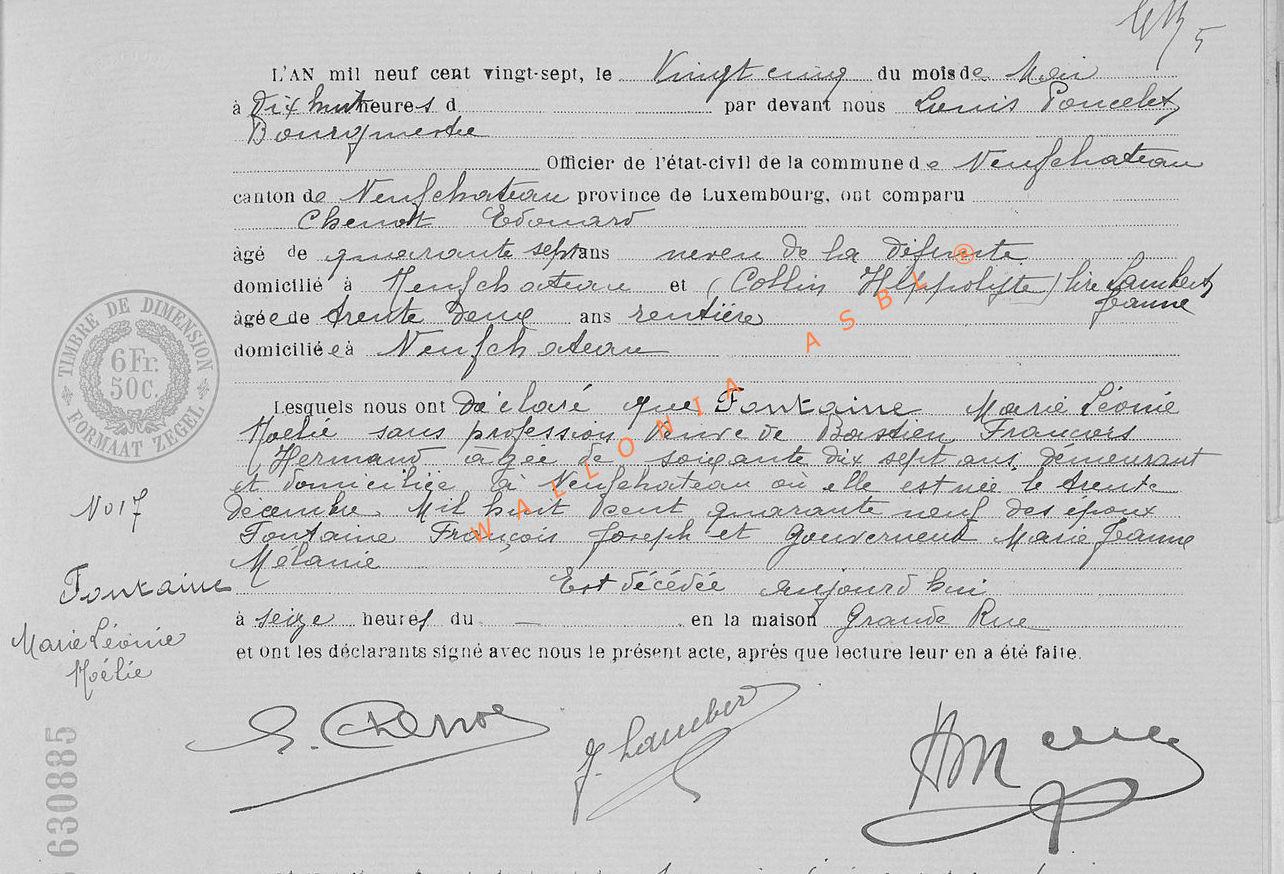 5
L'AN mil neuf cent vingt-sept, le Vingt cinq du mois de Mai
à Dix huit heures d par devant nous Louis Poncelet,
Bourgmestre
Officier de l'état-civil de la commune de Neufchateau
canton de Neufchateau province de Luxembourg, ont comparu
Chenot Edouard
âgé de quarante sept ans neveu de la défunte
domicilié à Neufchateau et (Collin Hyppolyte) lire Lambert
Jeanne
âgée de trente deux ans rentière
domiciliée à Neufchateau
Lesquels nous ont Déclaré que Fontaine Marie Léonie
Noélie sans profession Veuve de Bastien François
Hermand agée de soixante dix sept ans, demeurant
et domiciliée à Neufchateau où elle est née le trente
décembre Mil huit cent quarante neuf des époux
Fontaine François Joseph et Gouverneur Marie Jeanne
Mélanie
Est décédée aujourd'hui
à seize heures du — en la maison Grande Rue
et ont les déclarants signé avec nous le présent acte, après que lecture leur en a été faite.
TIMBRE DE DIMENSION
6 Fr.
50C.
FORMAAT ZEGEL
No 17
Fontaine
Marie Léonie
Noélie
630885
WALLONIA ASBL ®
E. Chenot
J. Lambert